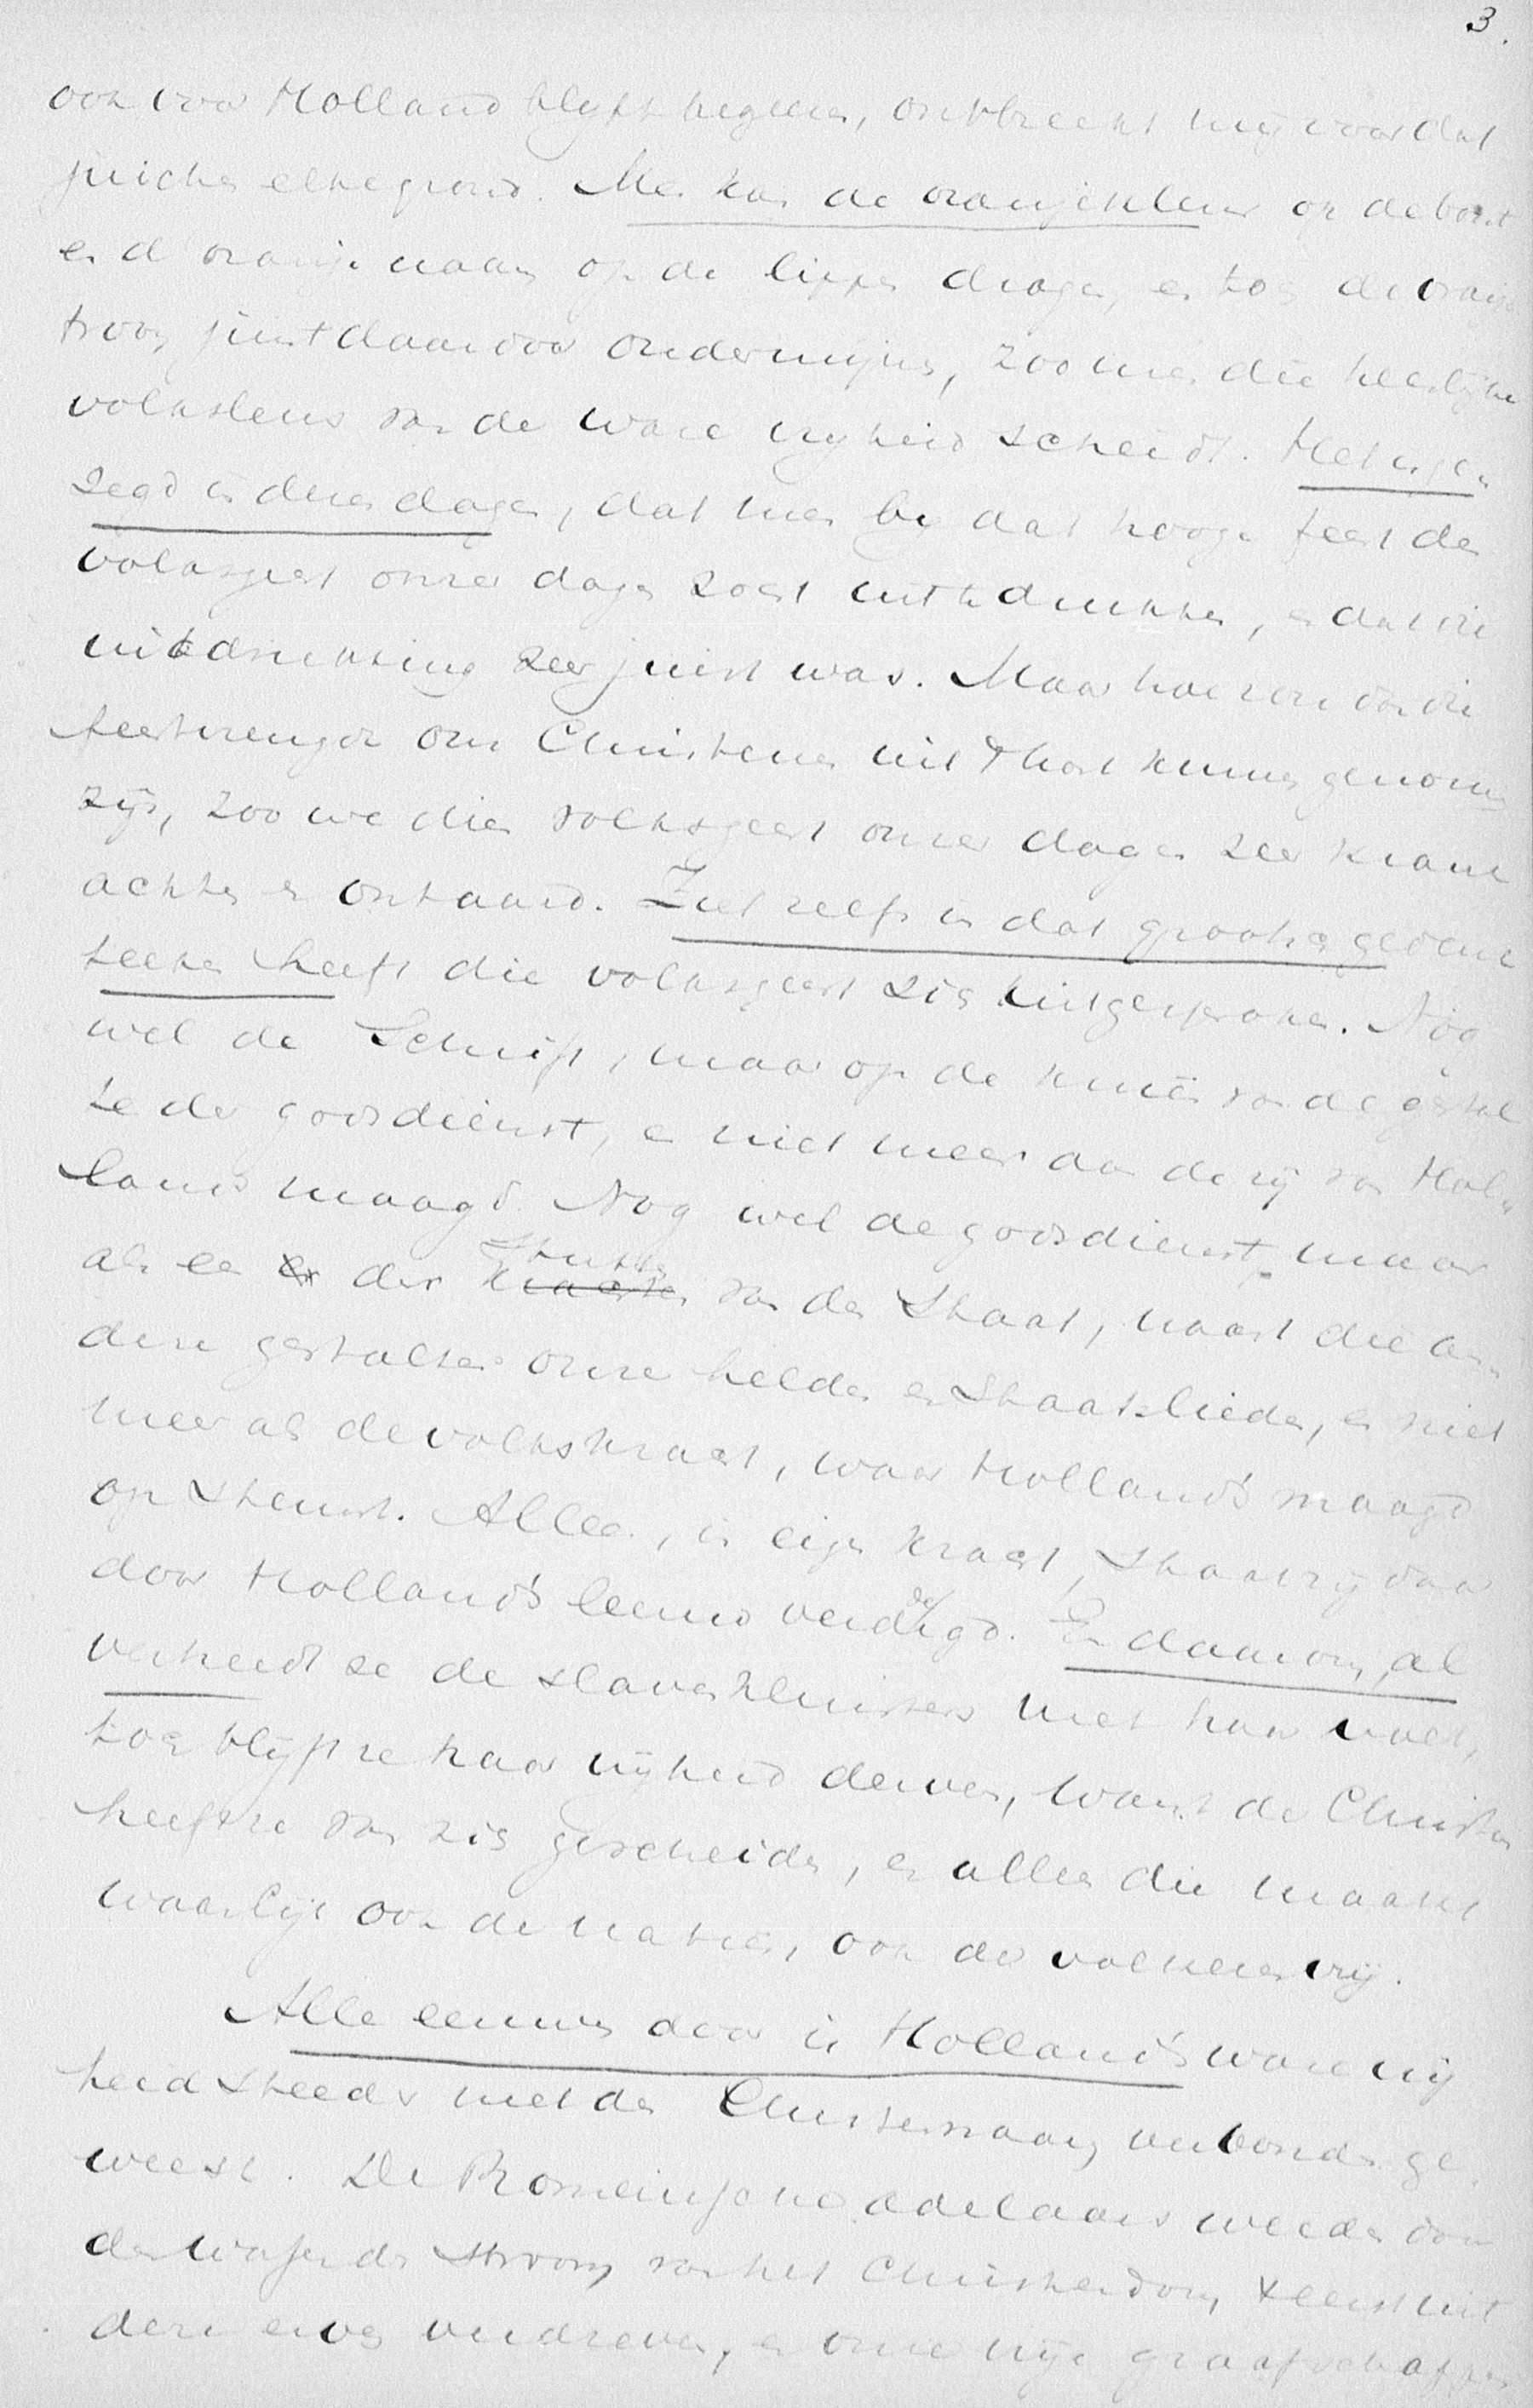 3.
ook voor Holland blyft hygeen, ontbreekt mij voor dat
juichen elke grond. Men kan de oranjekleur op de borst
en d' oranje naam op de lippen dragen, en toch de oranje
troon juist daardoor ondermijnen, zoo men die heerlijke
volksleus van de ware vryheid scheidt. Het is ge„
zegd in deze dagen, dat men by dat hooge feest den
volksgeest onzer dagen zocht uit te drukken, en dat die
uitdrukking zeer juist was. Maar hoe zou dan die
feestvreugde ons Christenen uit 't hart kunnen genomen
zijn, zoo we dien volksgeest onzer dagen zeer krank
achten en ontaard. Ziet zelfs in dat grootse gedenk
teeken heeft die volksgeest zich uitgesproken. Nog
wel de Schrift, maar op de knieën van de gestal
te der godsdienst, en niet meer aan de zij van Hol„
lands maagd. Nog wel de godsdienst, maar
als een der stutten van den Staat, naast die an„
dere gestalten onzer helden en Staatslieden, en niet
meer als de volkskracht, waar Holland's maagd
op steunt. Alleen, in eigen kracht, staat zij daar
door Holland's leeuw verdedigd. En daarom, al
vertreedt ze de slavenkluisters met haar voet,
toch blijft ze haar vrijheid derven, want de Christus
heeft ze van zich gescheiden, en alleen die maakt
waarlijk ook de natiën, ook de volkeren vrij.
Alle eeuwen door is Holland's ware vrij
heid steeds met den Christennaam verbonden ge„
weest. De Romeinsche adelaars werden door
den wassenden stroom van het Christendom 't eerst uit
deze erven verdreven, en onze vrije graafschappen